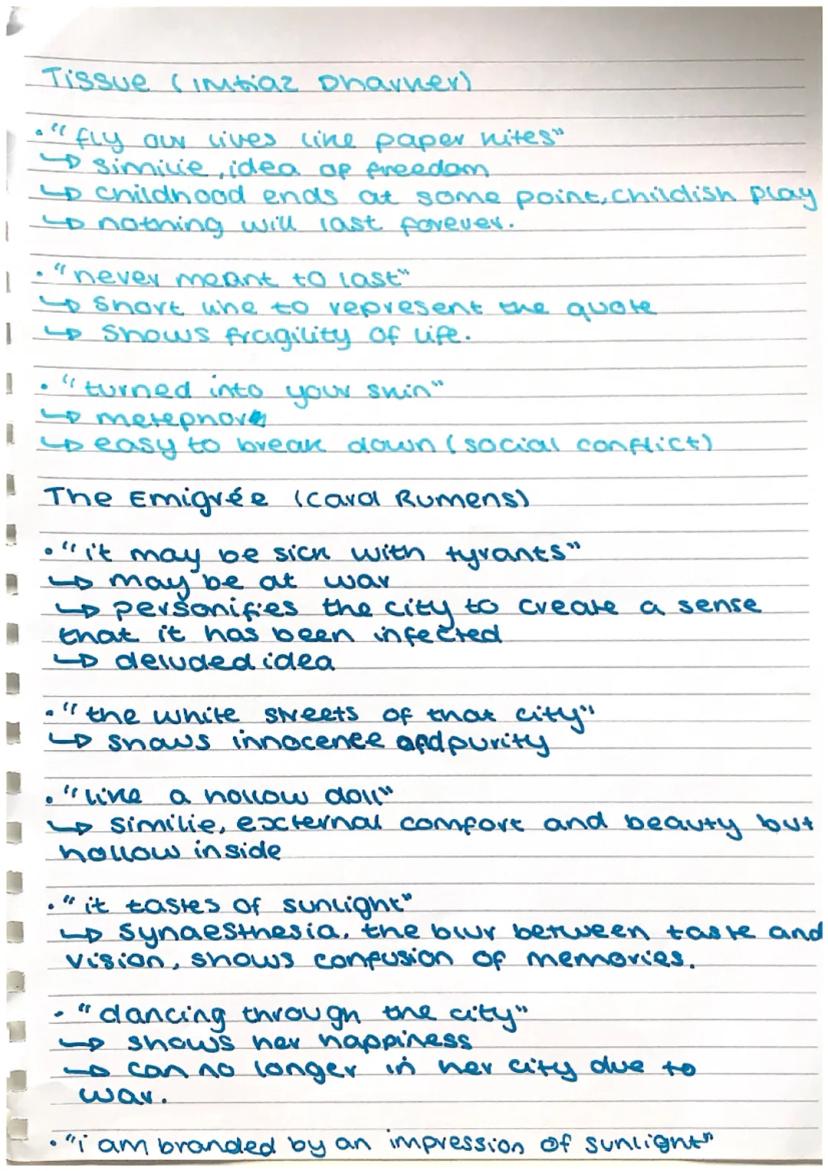 Tissue (Imtiaz Dharker)
• "fly our lives like paper kites"
↳ similie, idea of freedom
↳ childhood ends at some point, childish play
↳ nothing will last forever.
• "never meant to last"
↳ short line to represent the quote
↳ shows fragility of life.
• "turned into your skin"
↳ metephor
↳ easy to break down (social conflict)
The Emigrée (Carol Rumens)
• "it may be sick with tyrants"
↳ may be at war
↳ personifies the city to create a sense
that it has been infected
↳ deluded idea
• "the white streets of that city"
↳ shows innocence and purity
• "like a hollow doll"
↳ similie, external comfort and beauty but
hollow inside
• "it tastes of sunlight"
↳ synaesthesia, the blur between taste and
vision, shows confusion of memories.
• "dancing through the city"
↳ shows her happiness
↳ can no longer in her city due to
war.
• "i am branded by an impression of sunlight"